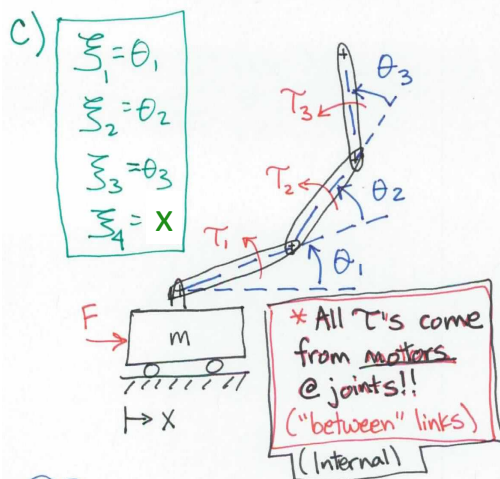 C)
ξ₁ = θ₁
ξ₂ = θ₂
ξ₃ = θ₃
ξ₄ = X
θ₃
τ₃
τ₂
θ₂
τ₁
θ₁
F
m
X
* All τ's come
from motors
@ joints!!
("between" links)
(Internal)